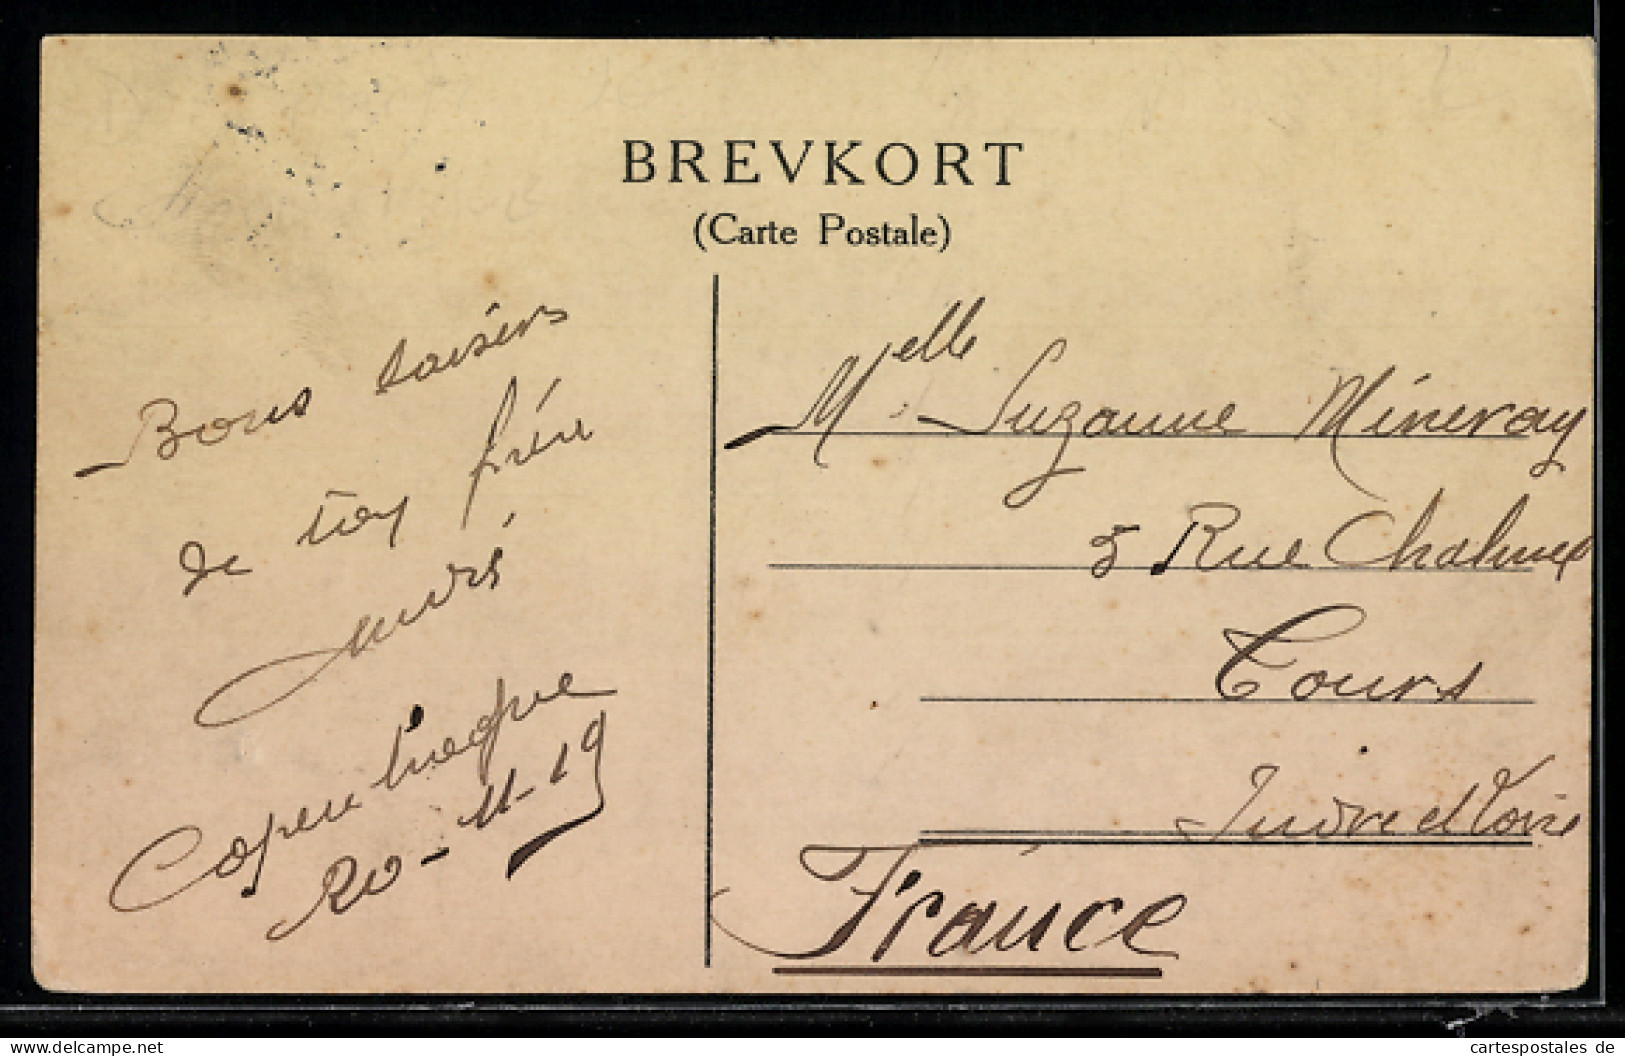 BREVKORT
(Carte Postale)
Bons baisers
de ton frère
André
Copenhague
20-11-19
Melle Suzanne Mineray
5 Rue Chalmel
Tours
Indre et Loire
France
cartespostales de